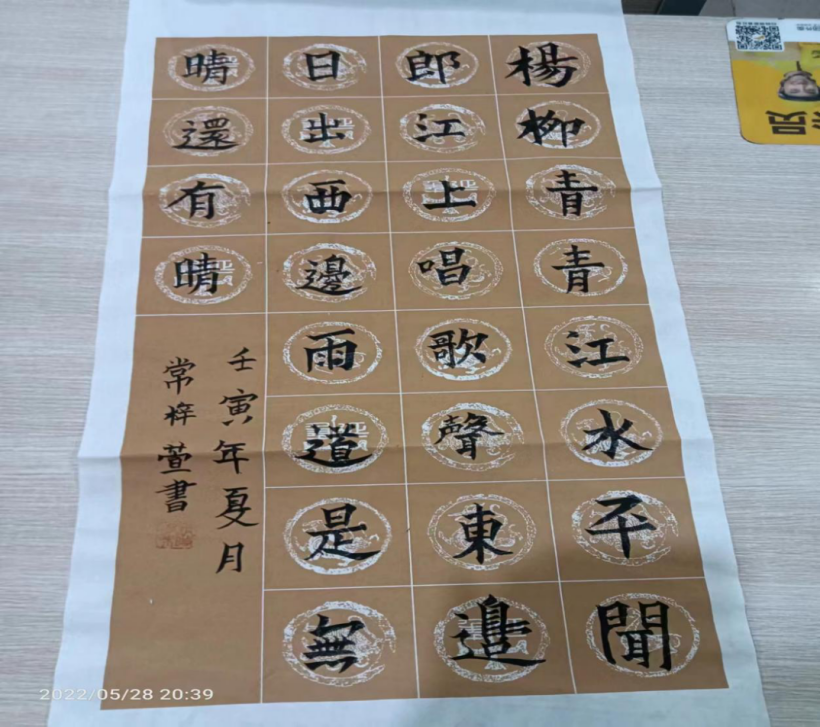 楊柳青青江水平聞
郎江上唱歌聲東邉
日出西邊雨道是無
晴還有晴
壬寅年夏月
常梓萱書
2022/05/28 20:39